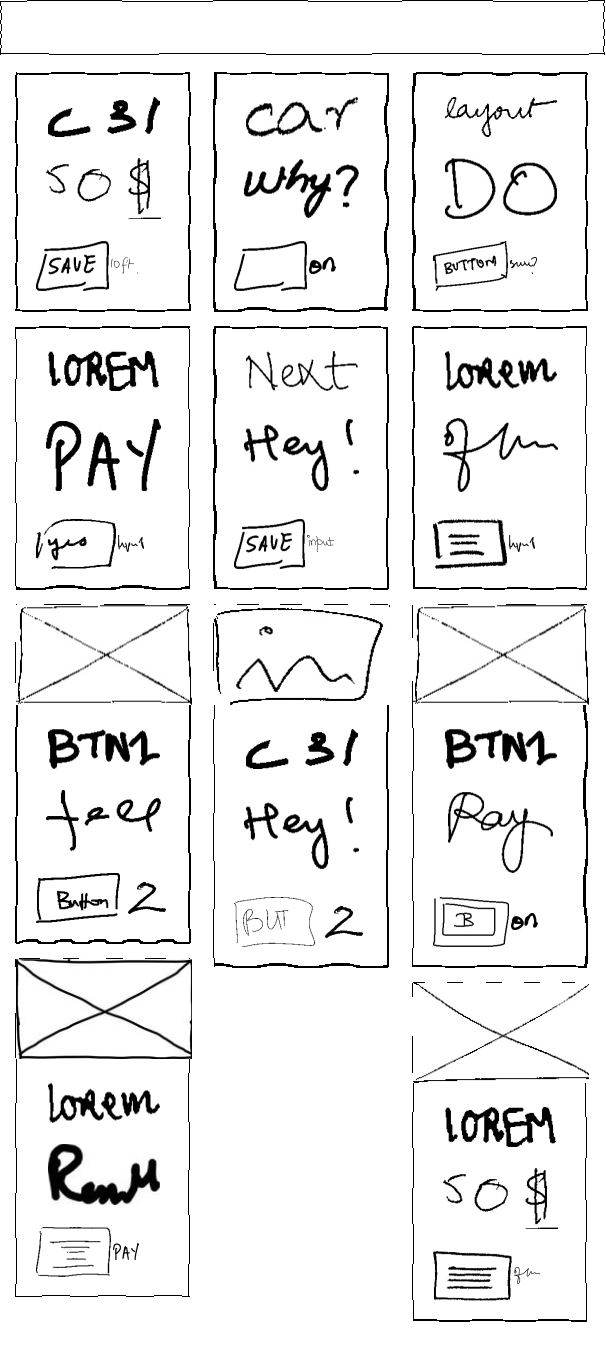 C 31
50 $
SAVE loft.
car
Why?
on
layout
DO
BUTTON
LOREM
PAY
yes
Next
Hey!
SAVE input
Lorem
BTN1
feel
Button 2
C 31
Hey!
BUT 2
BTN1
Pay
B on
Lorem
Result
PAY
LOREM
50 $